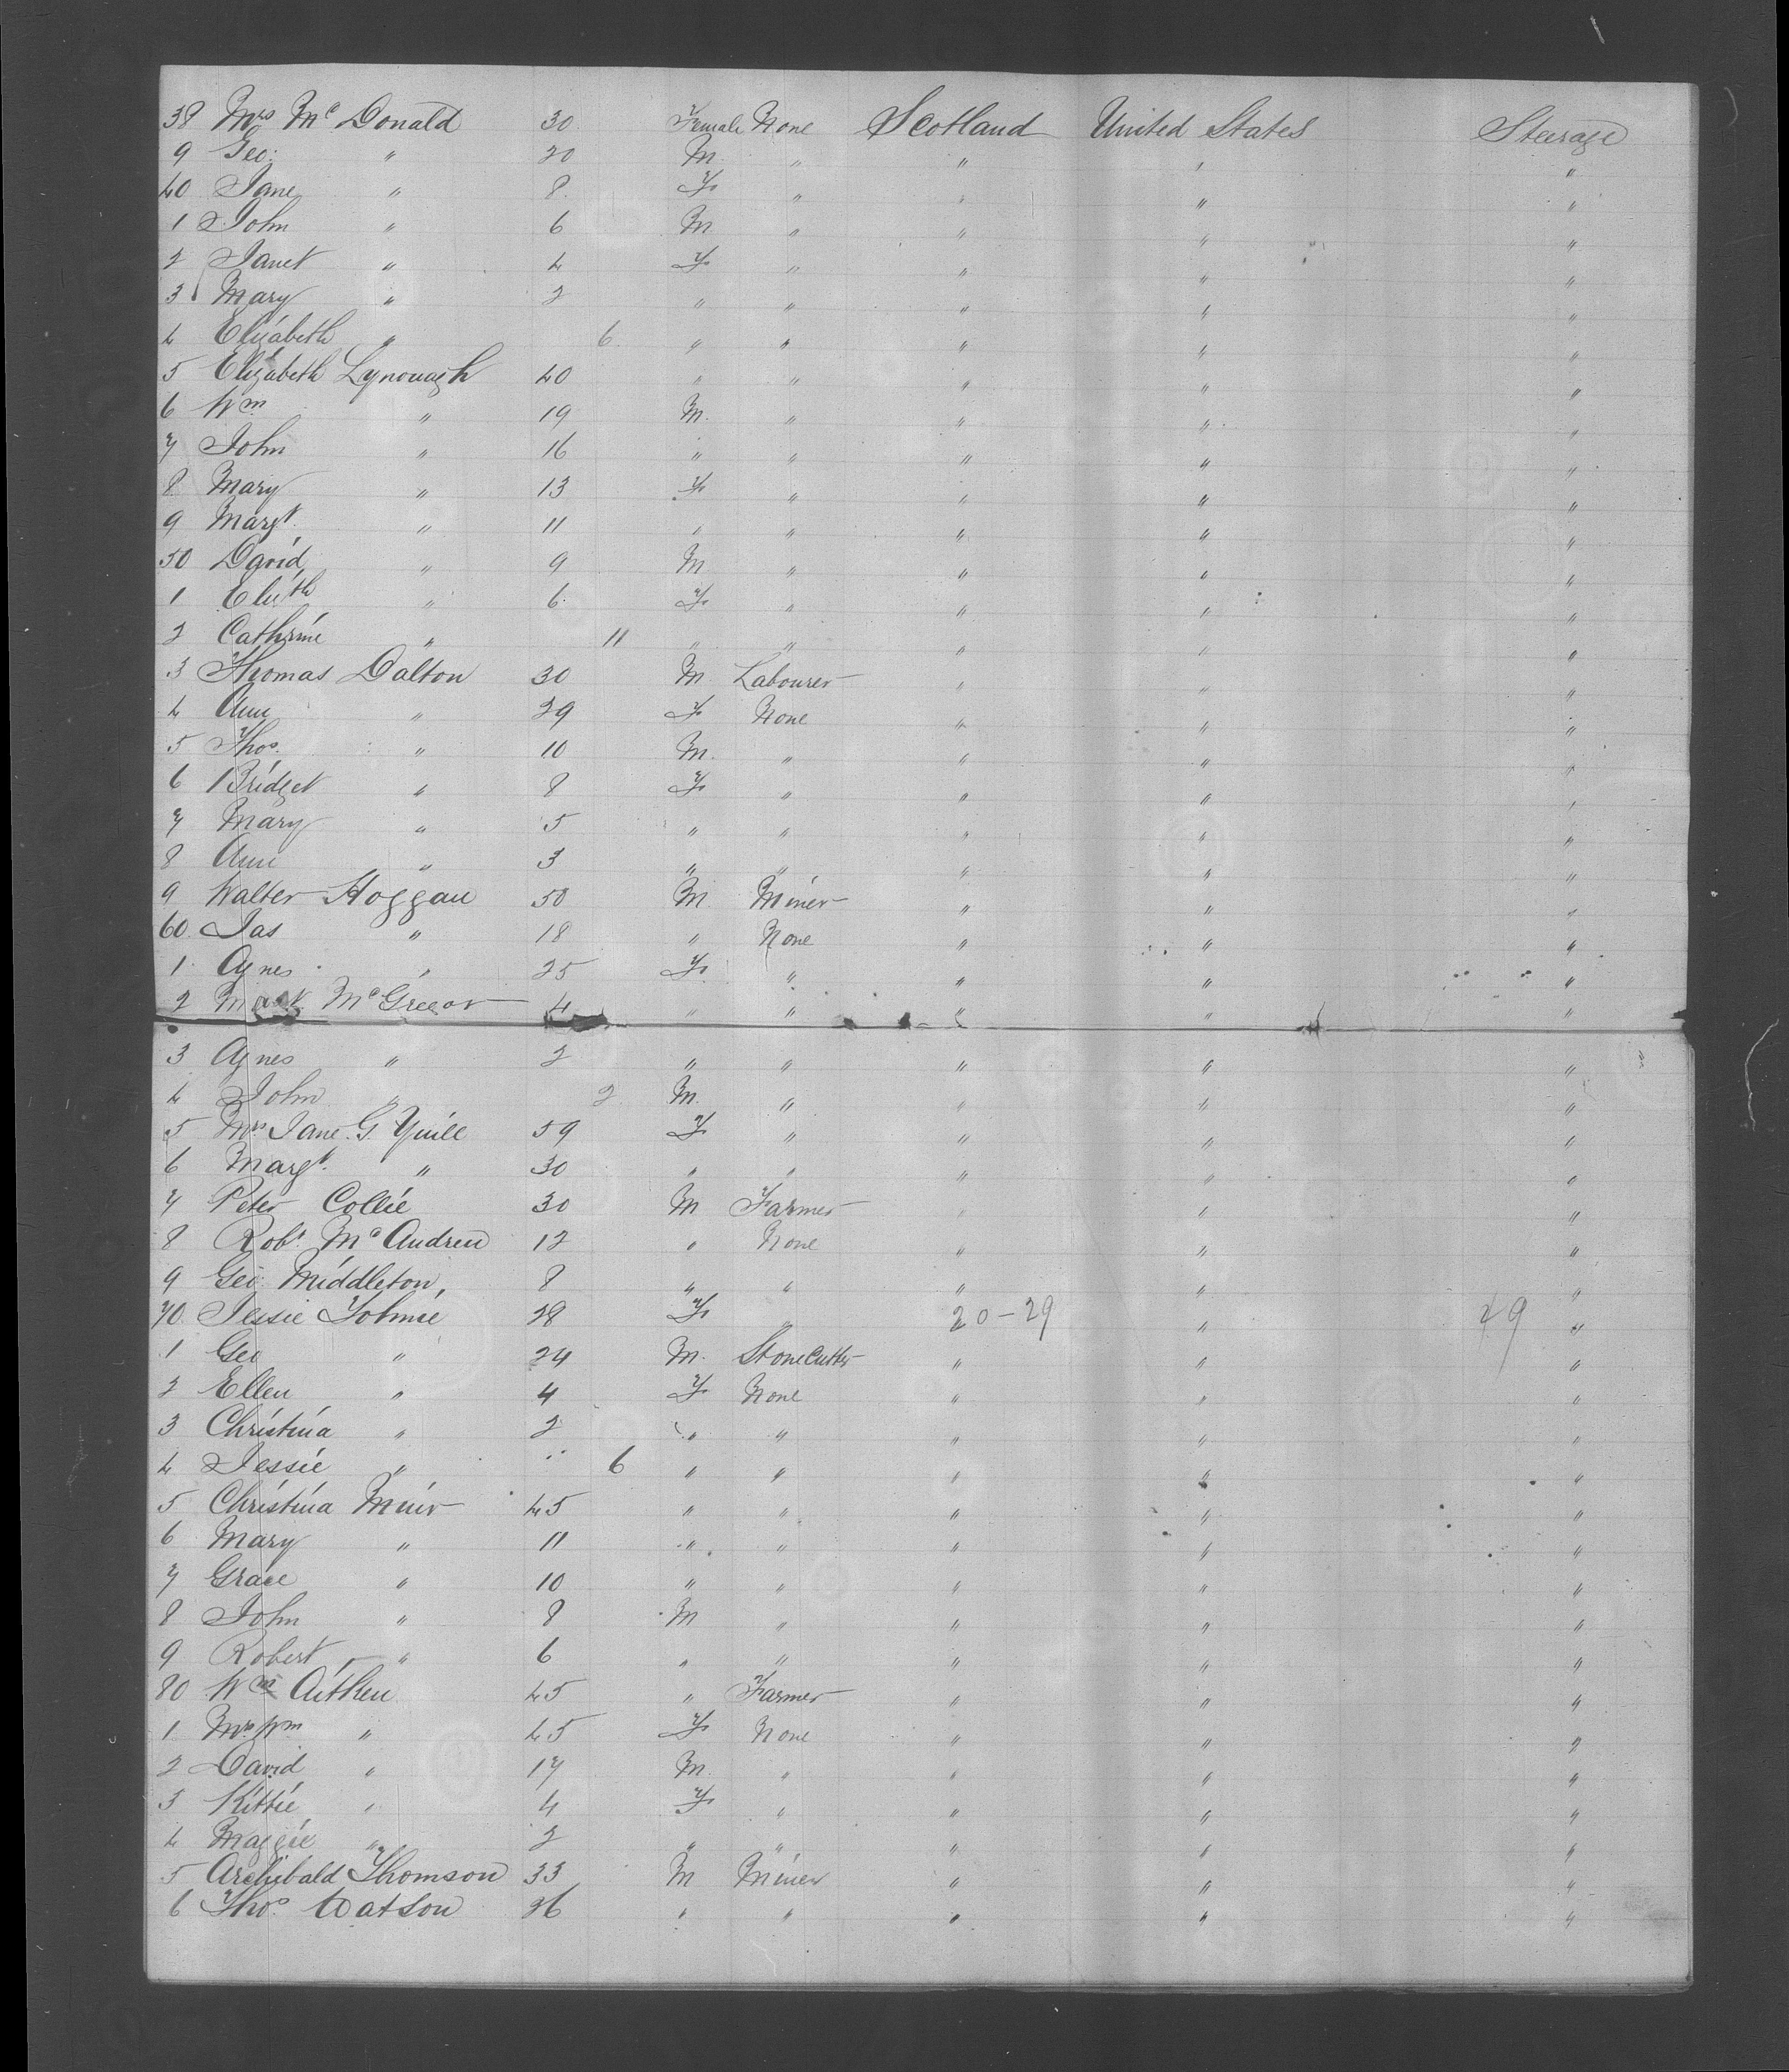 38 Mrs Mc Donald 30 Female None Scotland United States Steerage
9 Geo: " 20 M. " " " "
40 Jane " 8. F " " " "
1 John " 6 M " " " "
2 Janet " 4 F " " " "
3 Mary " 2 " " " " "
4 Elizabeth " 6. " " " " "
5 Elizabeth Lynouagh 40 " " " " "
6 Wm " 19 M. " " " "
7 John " 16 " " " " "
8 Mary " 13 F " " " "
9 Margt. " 11 " " " " "
50 David " 9 M " " " "
1 Elizth " 6. F " " " "
2 Cathrine " 11 " " " " "
3 Thomas Dalton 30 M Labourer " " "
4 Ann " 29 F None " " "
5 Thos. " 10 M. " " " "
6 Bridget " 8 F " " " "
7 Mary " 5 " " " " "
8 Ann " 3 " " " " "
9 Walter Hoggan 50 M Miner " " "
60. Jas " 18 " None " " "
1. Agnes " 25 F. " " " "
2 Mc Gregor 4 " " " " "
3 Agnes " 2 " " " " "
4 John " 2 M. " " " "
5 Mrs Jane. G. Yuill 59 F " " " "
6 Margt. " 30 " " " " "
7 Peter Collie 30 M Farmer " " "
8 Robt. Mc Andrew 12 " None " " "
9 Geo: Middleton, 8 " " " " "
70. Jessie 28 F " 20-29 " 49 "
1 Geo " 24 M. Stonecutter " " "
2 Ellen " 4 F None " " "
3 Christina " 2 " " " " "
4 Jessie " 6 " " " " "
5 Christina Muir 45 " " " " "
6 Mary " 11 " " " " "
7 Grace " 10 " " " " "
8 John " 8 M " " " "
9 Robert " 6 " " " " "
80 Wm Aitken 45 " Farmer " " "
1 Mrs Wm " 45 F None " " "
2 David " 17 M. " " " "
3 Kittie " 4 F " " " "
4 Maggie " 2 " " " " "
5 Archibald Thomson 33 M Miner " " "
6 Thos. Watson 26 " " " " "